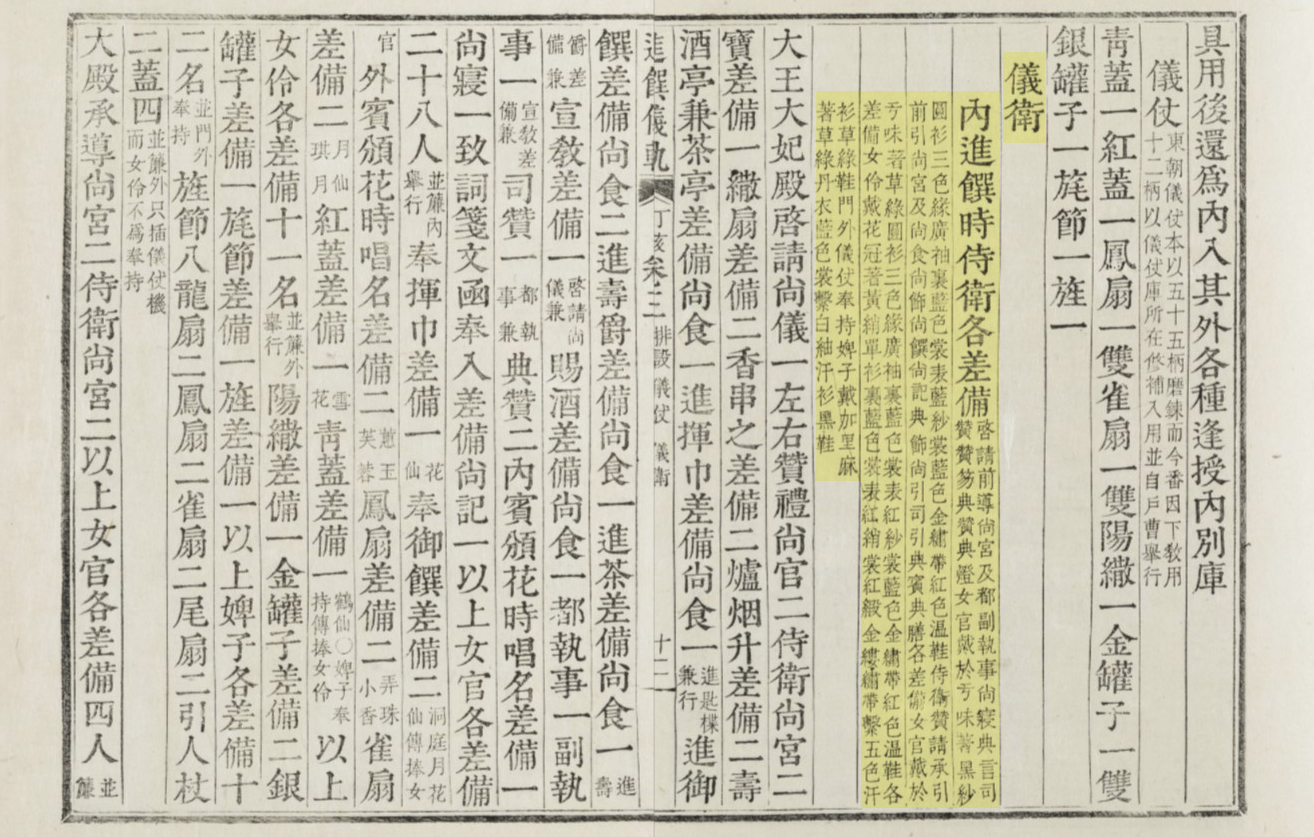 具用後還爲內入其外各種逢授內別庫
儀仗東朝儀仗本以五十五柄磨鍊而今番因下敎用
十二柄以儀仗庫所在修補入用並自戶曹擧行
靑蓋一紅蓋一鳳扇一雙雀扇一雙陽繖一金罐子一雙
銀罐子一旄節一旌一
儀衛
內進饌時侍衛各差備啓請前導尙宮及都副執事尙寢典言司
贊贊笏典贊典燈女官戴於亏味著黑紗
圓衫三色緣廣袖裏藍色裳表藍紗裳藍色金繡帶紅色溫鞋侍衛贊請承引
前引尙宮及尙食尙飾尙饌尙記典飾尙引司引典賓典膳各差備女官戴於
亏味著草綠圓衫三色緣廣袖裏藍色裳表紅紗裳藍色金繡帶紅色溫鞋各
差備女伶戴花冠著黃綃單衫裏藍色裳表紅綃裳紅緞金縷繡帶繫五色汗
衫草綠鞋門外儀仗奉持婢子戴加里麻
著草綠丹衣藍色裳繫白紬汗衫黑鞋
大王大妃殿啓請尙儀一左右贊禮尙官二侍衛尙宮二
寶差備一繖扇差備二香串之差備二爐烟升差備二壽
酒亭兼茶亭差備尙食一進揮巾差備尙食一進匙楪
兼行進御
進饌儀軌 丁亥 卷二 排設 儀仗 儀衛 十二
饌差備尙食二進壽爵差備尙食一進茶差備尙食一進
壽
爵差
備兼宣敎差備一啓請尙
儀兼賜酒差備尙食一都執事一副執
事一宣敎差
備兼司贊一都執
事兼典贊二內賓頒花時唱名差備一
尙寢一致詞箋文函奉入差備尙記一以上女官各差備
二十八人並簾內
擧行奉揮巾差備一花
仙奉御饌差備二洞庭月花
仙傳捧女
官外賓頒花時唱名差備二蕙玉
芙蓉鳳扇差備二弄珠
小香雀扇
差備二月仙
琪月紅蓋差備一雪
花靑蓋差備一鶴仙〇婢子奉
持傳捧女伶以上
女伶各差備十一名並簾外
擧行陽繖差備一金罐子差備二銀
罐子差備一旄節差備一旌差備一以上婢子各差備十
二名並門外
奉持旌節八龍扇二鳳扇二雀扇二尾扇二引人杖
二蓋四並簾外只揷儀仗機
而女伶不爲奉持
大殿承導尙宮二侍衛尙宮二以上女官各差備四人並
簾